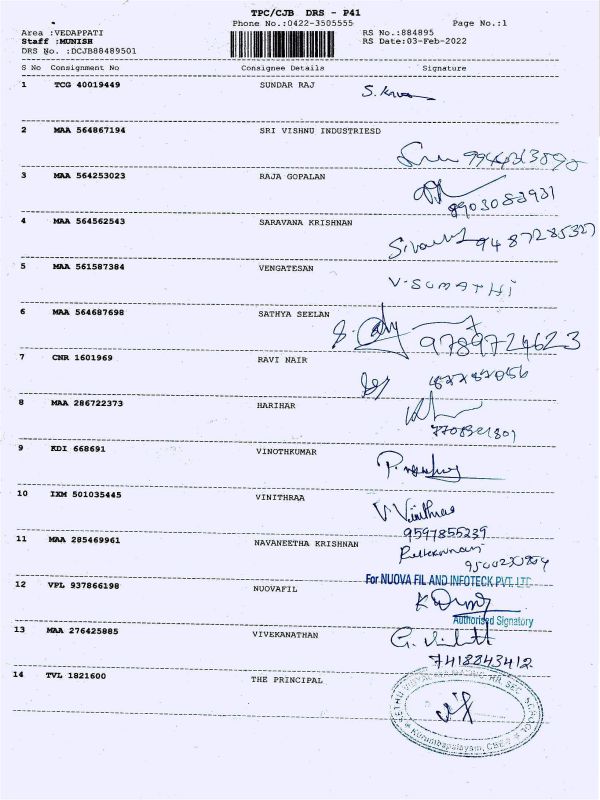 TPC/CJB DRS - P41
Phone No.:0422-3505555 Page No.:1
Area :VEDAPPATI RS No.:884895
Staff :MUNISH RS Date:03-Feb-2022
DRS No. :DCJB88489501
S No Consignment No Consignee Details Signature
1 TCG 40019449 SUNDAR RAJ
2 MAA 564867194 SRI VISHNU INDUSTRIESD
3 MAA 564253023 RAJA GOPALAN
8903083931
4 MAA 564562543 SARAVANA KRISHNAN
9487285327
5 MAA 561587384 VENGATESAN
V-SUMATHI
6 MAA 564687698 SATHYA SEELAN
9789724623
7 CNR 1601969 RAVI NAIR
8 MAA 286722373 HARIHAR
9 KDI 668691 VINOTHKUMAR
10 IXM 501035445 VINITHRAA
V Vinithraa
9597855239
11 MAA 285469961 NAVANEETHA KRISHNAN
For NUOVA FIL AND INFOTECK PVT. LTD
12 VPL 937866198 NUOVAFIL
Authorised Signatory
13 MAA 276425885 VIVEKANATHAN
7418843412
14 TVL 1821600 THE PRINCIPAL
HR SEC. SCHOOL
Kurumbapalayam, CBE